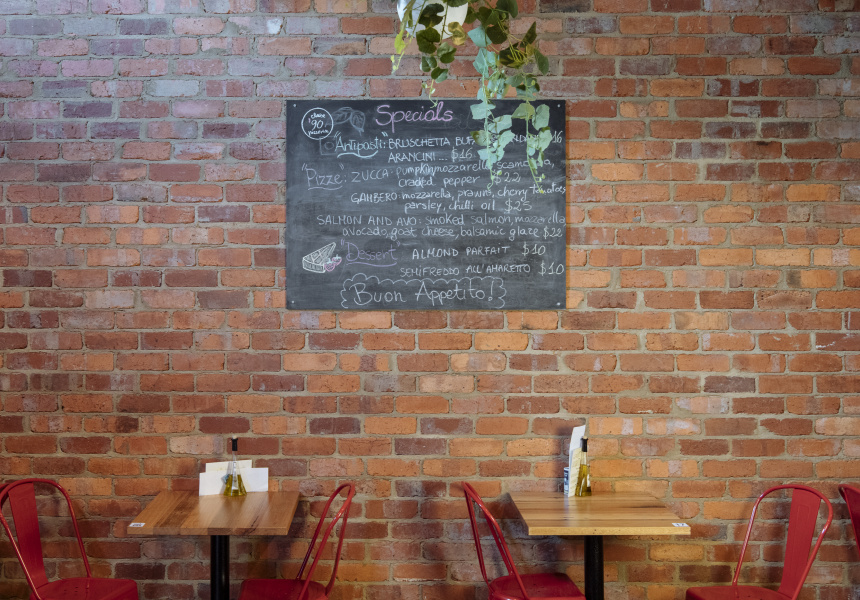 Specials
90
"Antipasti" BRUSCHETTA
ARANCINI... $16
"Pizze": ZUCCA: pumpkin, mozzarella, scamorza,
cracked pepper $22
GAMBERO: mozzarella, prawns, cherry tomatoes
parsley, chilli oil $25
SALMON AND AVO: smoked salmon, mozzarella
avocado, goat cheese, balsamic glaze $22
"Dessert" ALMOND PARFAIT $10
SEMIFREDDO ALL'AMARETTO $10
Buon Appetito!